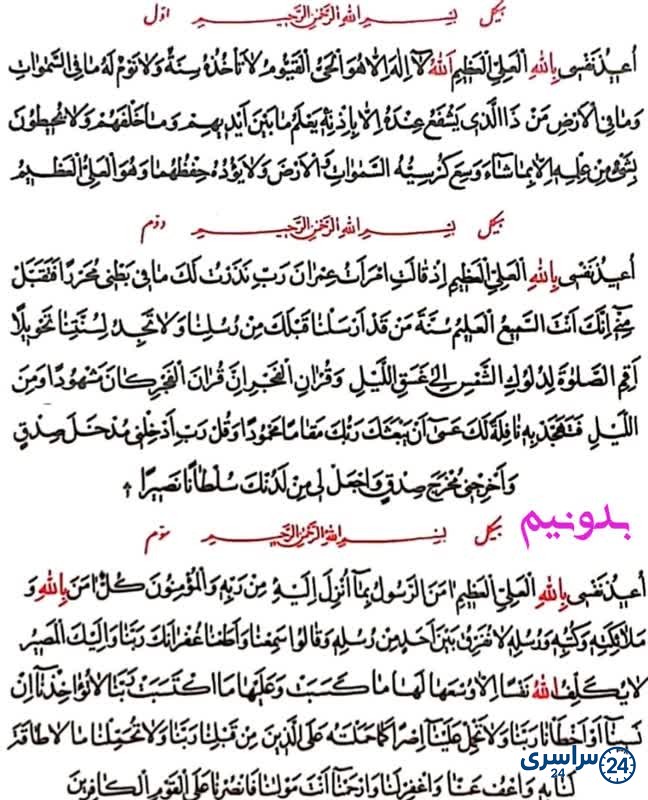 هیکل بِسْمِ اللهِ الرَّحْمٰنِ الرَّحِیمِ اوّل
اُعِیذُ نَفْسِی بِاللهِ الْعَلِیِّ الْعَظِیمِ اَللهُ لآ اِلٰهَ اِلاّ هُوَ الْحَیُّ الْقَیُّومُ لا تَأْخُذُهُ سِنَةٌ وَلا نَوْمٌ لَهُ مَا فِی السَّمٰوَاتِ
وَمَا فِی الْاَرْضِ مَنْ ذَا الَّذِی یَشْفَعُ عِنْدَهُ اِلاّ بِاِذْنِهِ یَعْلَمُ مَا بَیْنَ اَیْدِیهِمْ وَمَا خَلْفَهُمْ وَلا یُحِیطُونَ
بِشَیْءٍ مِنْ عِلْمِهِ اِلاّ بِمَا شَآءَ وَسِعَ کُرْسِیُّهُ السَّمٰوَاتِ وَالْاَرْضَ وَلا یَؤُدُهُ حِفْظُهُمَا وَهُوَ الْعَلِیُّ الْعَظِیمُ
هیکل بِسْمِ اللهِ الرَّحْمٰنِ الرَّحِیمِ دوّم
اُعِیذُ نَفْسِی بِاللهِ الْعَلِیِّ الْعَظِیمِ اِذْ قَالَتِ امْرَاَتُ عِمْرَانَ رَبِّ نَذَرْتُ لَکَ مَا فِی بَطْنِی مُحَرَّرًا فَتَقَبَّلْ
مِنِّی اِنَّکَ اَنْتَ السَّمِیعُ الْعَلِیمُ سُنَّةَ مَنْ قَدْ اَرْسَلْنَا قَبْلَکَ مِنْ رُسُلِنَا وَلا تَجِدُ لِسُنَّتِنَا تَحْوِیلًا
اَقِمِ الصَّلٰوةَ لِدُلُوکِ الشَّمْسِ اِلیٰ غَسَقِ اللَّیْلِ وَقُرْاٰنَ الْفَجْرِ اِنَّ قُرْاٰنَ الْفَجْرِ کَانَ مَشْهُودًا وَمِنَ
اللَّیْلِ فَتَهَجَّدْ بِهِ نَافِلَةً لَکَ عَسیٰ اَنْ یَبْعَثَکَ رَبُّکَ مَقَامًا مَحْمُودًا وَقُلْ رَبِّ اَدْخِلْنِی مُدْخَلَ صِدْقٍ
وَاَخْرِجْنِی مُخْرَجَ صِدْقٍ وَاجْعَلْ لِی مِنْ لَدُنْکَ سُلْطَانًا نَصِیرًا
بدونیم
هیکل بِسْمِ اللهِ الرَّحْمٰنِ الرَّحِیمِ سوّم
اُعِیذُ نَفْسِی بِاللهِ الْعَلِیِّ الْعَظِیمِ اٰمَنَ الرَّسُولُ بِمَا اُنْزِلَ اِلَیْهِ مِنْ رَبِّهِ وَالْمُؤْمِنُونَ کُلٌّ اٰمَنَ بِاللهِ وَ
مَلآئِکَتِهِ وَکُتُبِهِ وَرُسُلِهِ لا نُفَرِّقُ بَیْنَ اَحَدٍ مِنْ رُسُلِهِ وَقَالُوا سَمِعْنَا وَاَطَعْنَا غُفْرَانَکَ رَبَّنَا وَاِلَیْکَ الْمَصِیرُ
لا یُکَلِّفُ اللهُ نَفْسًا اِلاّ وُسْعَهَا لَهَا مَا کَسَبَتْ وَعَلَیْهَا مَا اکْتَسَبَتْ رَبَّنَا لا تُؤَاخِذْنَا اِنْ
نَسِینَا اَوْ اَخْطَاْنَا رَبَّنَا وَلا تَحْمِلْ عَلَیْنَا اِصْرًا کَمَا حَمَلْتَهُ عَلَی الَّذِینَ مِنْ قَبْلِنَا رَبَّنَا وَلا تُحَمِّلْنَا مَا لا طَاقَةَ
لَنَا بِهِ وَاعْفُ عَنَّا وَاغْفِرْ لَنَا وَارْحَمْنَا اَنْتَ مَوْلٰنَا فَانْصُرْنَا عَلَی الْقَوْمِ الْکَافِرِینَ
سراسری 24
24